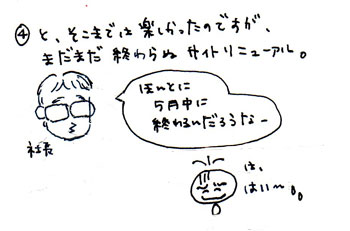 ④ と、そこまでは楽しかったのですが、
まだまだ終わらぬサイトリニューアル。
ほんとに
5月中に
終わるんだろうな〜
社長
は、
はい〜。